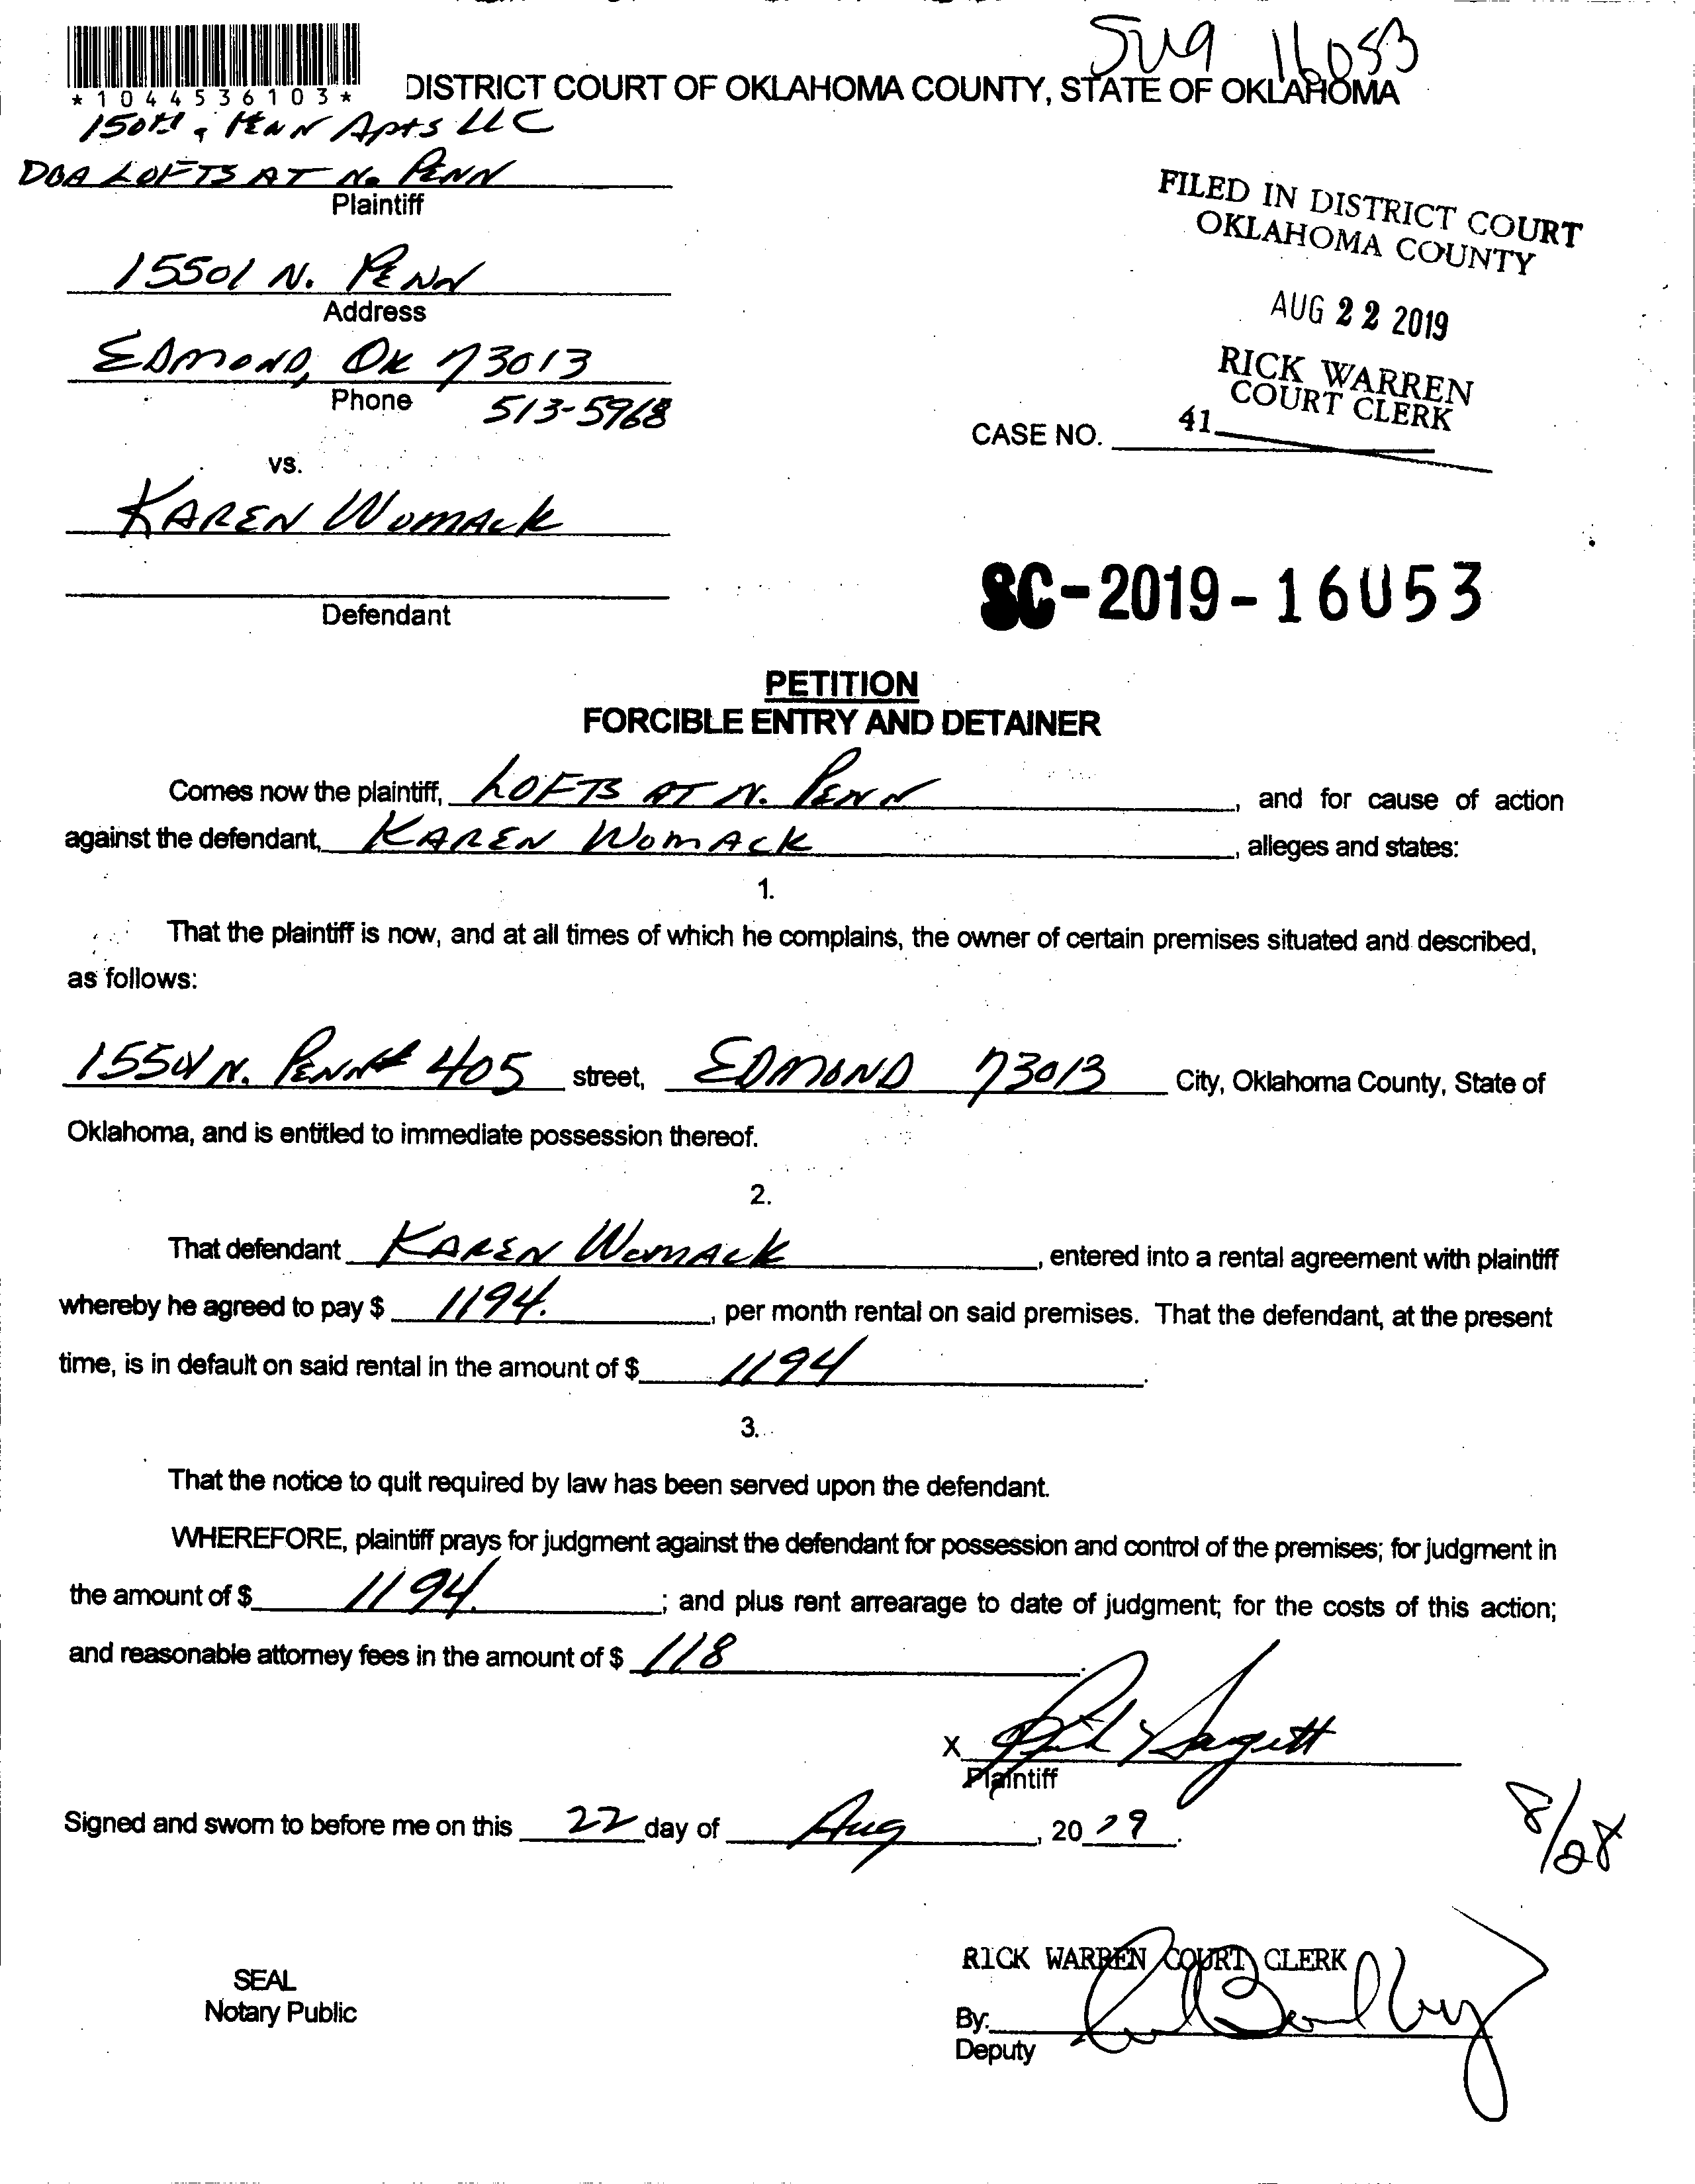 SU9 16053
*1044536103*
DISTRICT COURT OF OKLAHOMA COUNTY, STATE OF OKLAHOMA
150TH & PENN Apts LLC
DBA LOFTS AT No. PENN
Plaintiff
FILED IN DISTRICT COURT
OKLAHOMA COUNTY
15501 N. PENN
Address
AUG 22 2019
EDMOND, OK 73013
Phone 513-5968
RICK WARREN
COURT CLERK
CASE NO. 41
vs.
KAREN WOMACK
Defendant
SC-2019-16053
PETITION
FORCIBLE ENTRY AND DETAINER
Comes now the plaintiff, LOFTS AT N. PENN, and for cause of action
against the defendant, KAREN WOMACK, alleges and states:
1.
That the plaintiff is now, and at all times of which he complains, the owner of certain premises situated and described,
as follows:
15501 N. PENN # 405 street, EDMOND 73013 City, Oklahoma County, State of
Oklahoma, and is entitled to immediate possession thereof.
2.
That defendant KAREN WOMACK, entered into a rental agreement with plaintiff
whereby he agreed to pay $ 1194., per month rental on said premises. That the defendant, at the present
time, is in default on said rental in the amount of $ 1194.
3.
That the notice to quit required by law has been served upon the defendant.
WHEREFORE, plaintiff prays for judgment against the defendant for possession and control of the premises; for judgment in
the amount of $ 1194.; and plus rent arrearage to date of judgment; for the costs of this action;
and reasonable attorney fees in the amount of $ 118.
X
Plaintiff
Signed and sworn to before me on this 22 day of Aug, 2019.
8/28
RICK WARREN COURT CLERK
SEAL
Notary Public
By:
Deputy